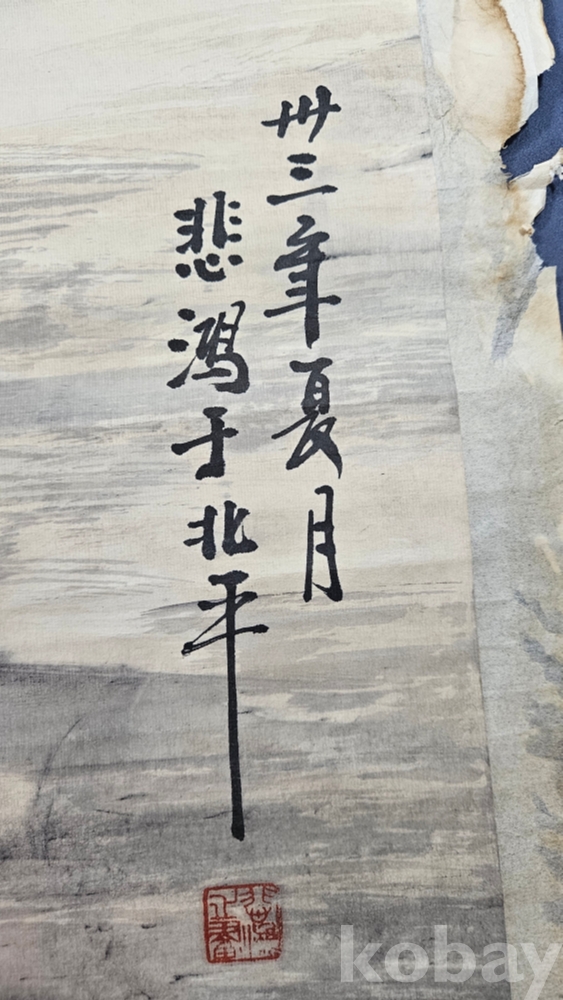 卅三年夏月
悲鴻于北平
kobay